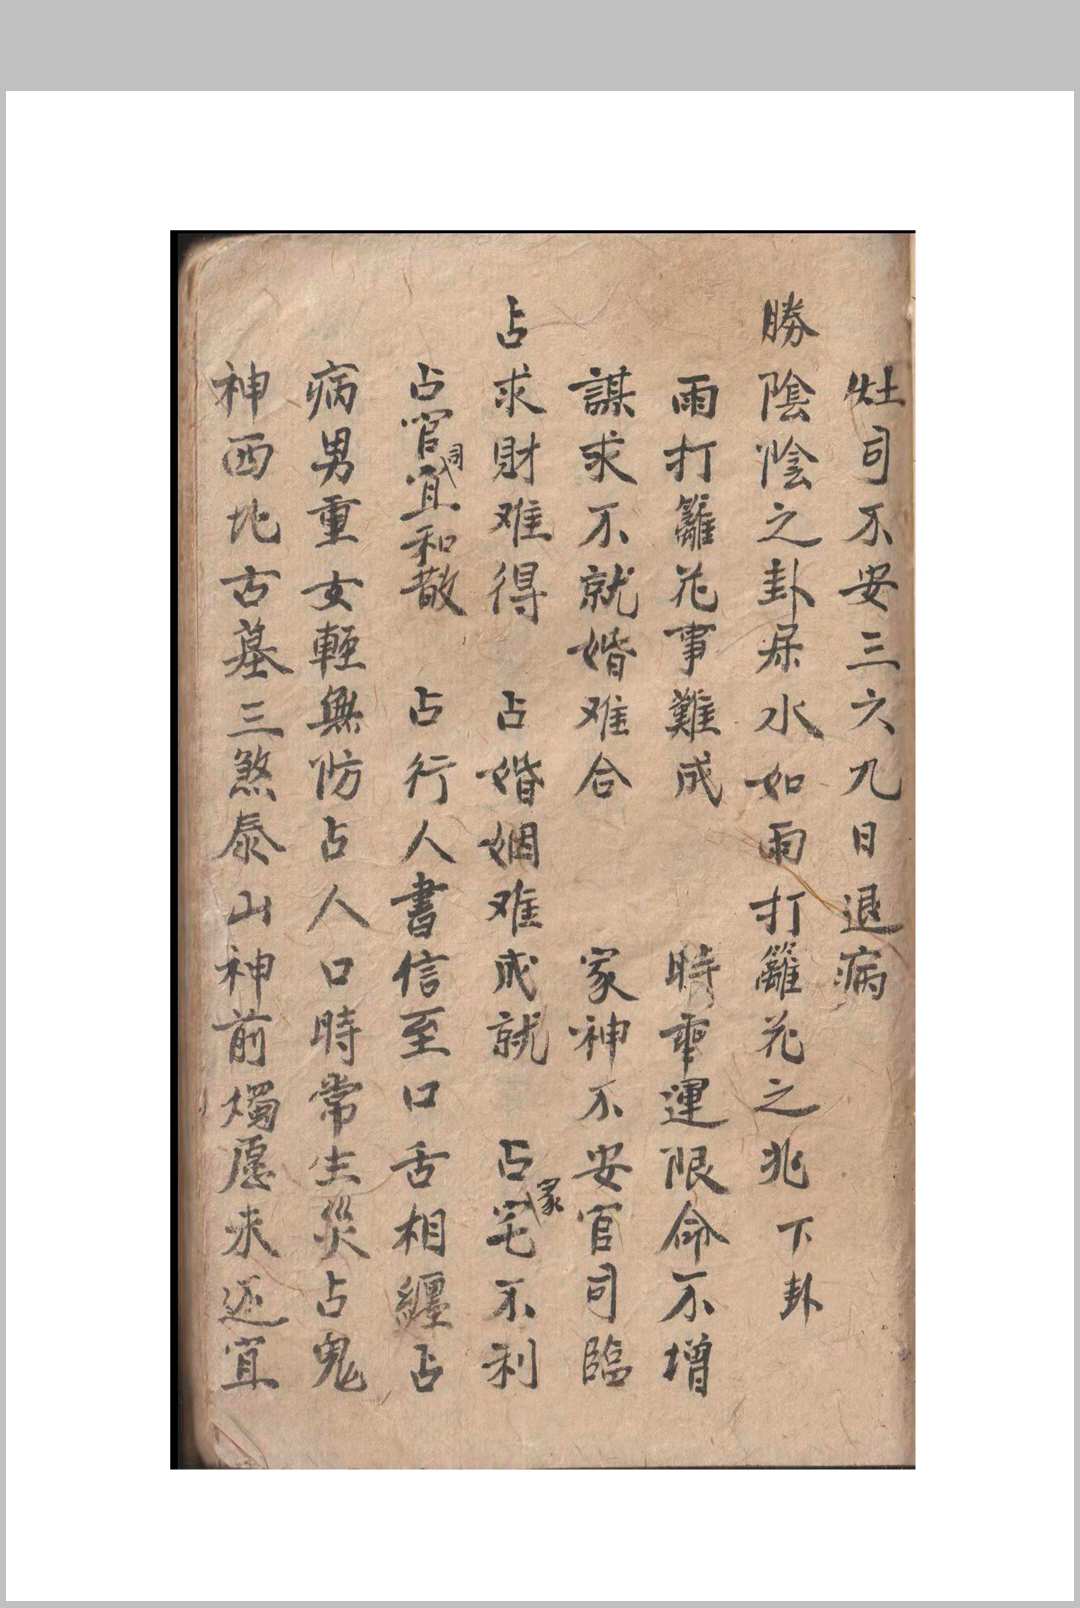 灶司不安三六九日退病
勝陰陰之卦屎水如雨打籬花之兆下卦
雨打籬花事難成　時乖運限命不增
謀求不就婚难合　家神不安官司臨
占求財难得　占婚姻难成就　占家宅不利
占官司宜和散　占行人書信至口舌相纏占
病男重女輕無防占人口時常生災占鬼
神西北古墓三煞泰山神前燭愿未还宜